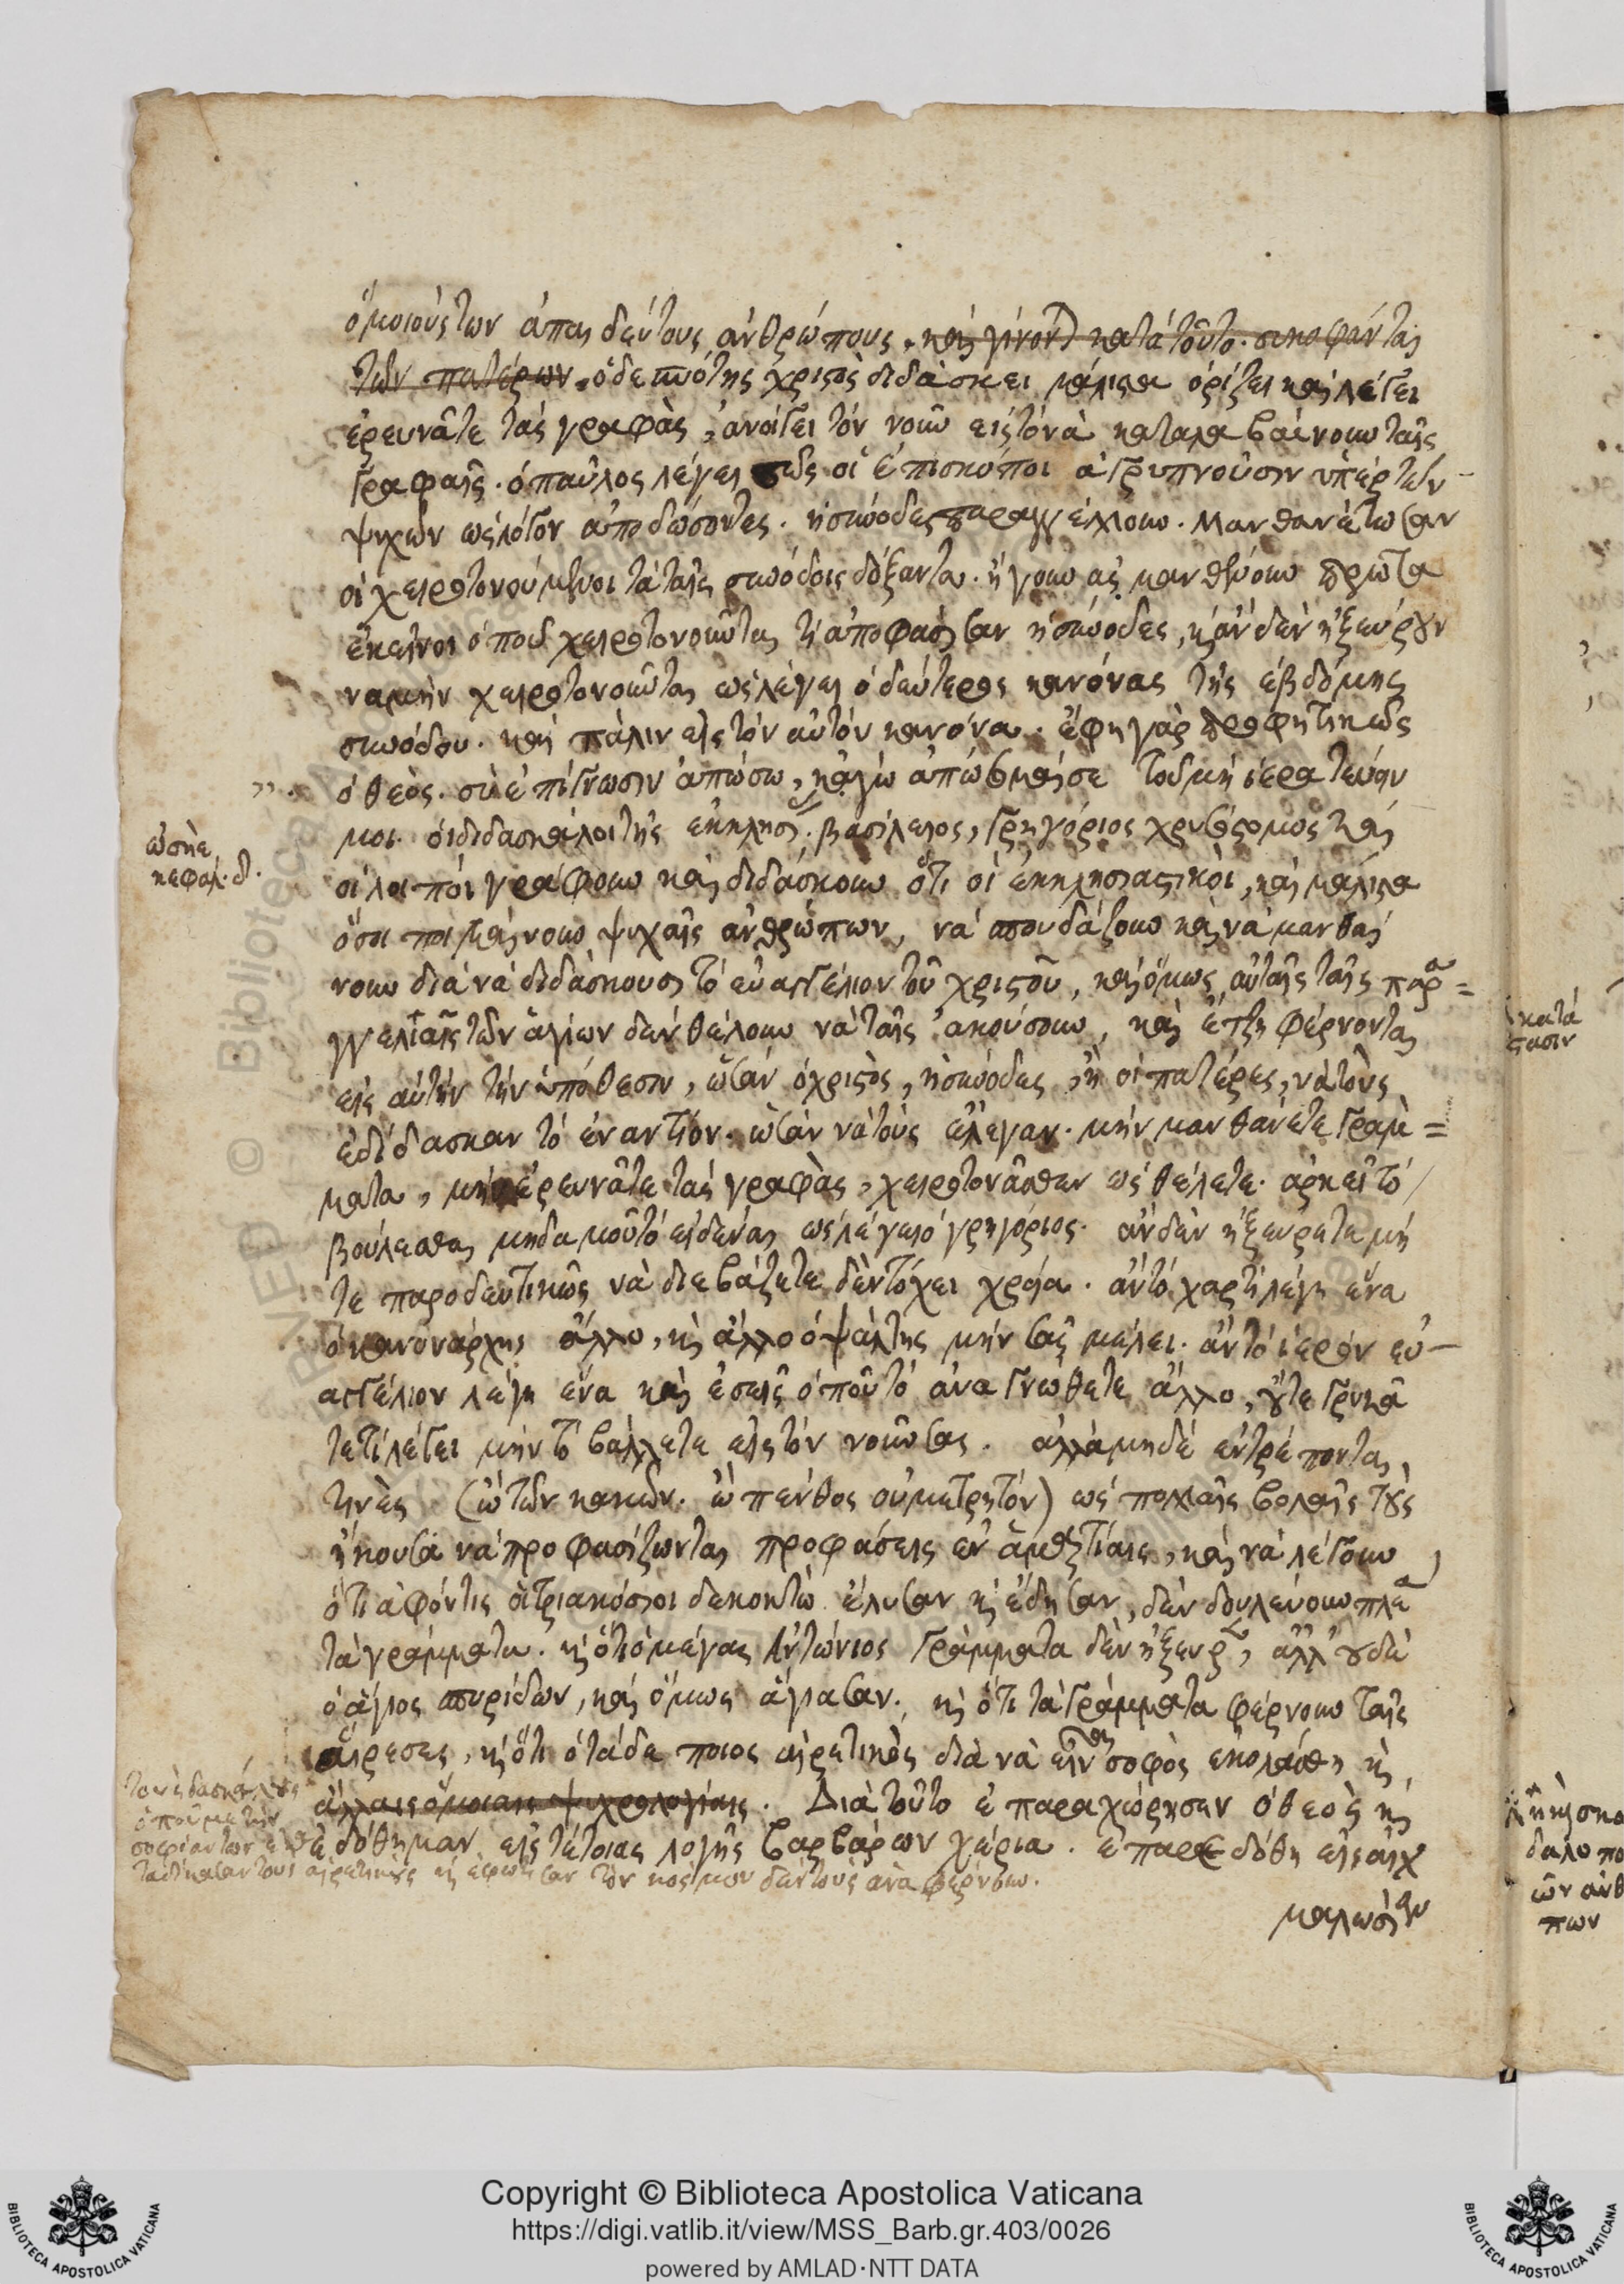 ὅμοιούς των ἀπαιδεύτους ἀνθρώπους. καὶ γίνονται κατὰ τοῦτο συκοφάνται
τῶν πατέρων. ὁ δεσπότης χριστὸς διδάσκει μάλιστα ὁρίζει καὶ λέγει
ἐρευνᾶτε τὰς γραφὰς, ἀνοίγει τὸν νοῦν εἰς τὸ νὰ καταλαβαίνουν ταῖς
γραφαῖς. ὁ παῦλος λέγει πῶς οἱ ἐπισκόποι ἀγρυπνοῦσιν ὑπὲρ τῶν
ψυχῶν ὡς λόγον ἀποδώσοντες. ἡ σύνοδες παραγγέλλουν. Μανθανέτωσαν
οἱ χειροτονούμενοι τὰ ταῖς συνόδοις δόξαντα. ἤγουν ἂς μανθάνουν πρῶτα
ἐκεῖνοι ὁποῦ χειροτονοῦνται τί ἀποφάσισαν ἡ σύνοδες, κι ἂν δὲν ἠξεύρουν
νὰ μὴν χειροτονοῦνται ὡς λέγει ὁ δεύτερος κανόνας τῆς ἑβδόμης
συνόδου. καὶ πάλιν εἰς τὸν αὐτὸν κανόνα. ἔφη γὰρ προφητικῶς
ὁ θεὸς. σὺ ἐπίγνωσιν ἀπώσω, κᾀγὼ ἀπώσομαί σε τοῦ μὴ ἱερατεύειν
μοι. οἱ διδασκάλοι τῆς ἐκκλησίας. βασίλειος, γρηγόριος χρυσόστομος καὶ
ὡσηὲ
κεφαλ. δ.
οἱ λοιποὶ γράφουν καὶ διδάσκουν ὅτι οἱ ἐκκλησιαστικοὶ, καὶ μάλιστα
ὅσοι ποιμαίνουν ψυχαῖς ἀνθρώπων, νὰ σπουδάζουν καὶ νὰ μανθαί
νουν διὰ νὰ διδάσκουσι τὸ εὐαγγέλιον τοῦ χριστοῦ, καὶ ὅμως αὐταῖς ταῖς παρα=
γγελίαις τῶν ἁγίων δὲν θέλουν νὰ ταῖς ἀκούσουν, καὶ ἔτζη φέρνονται
εἰς αὐτὴν τὴν ὑπόθεσιν, ὡσὰν ὁ χριστὸς, ἡ σύνοδες, ἢ οἱ πατέρες, νὰ τοὺς
ἐδίδασκαν τὸ ἐναντίον. ὡσὰν νὰ τοὺς ἔλεγαν. μὴν μανθάνετε γράμ=
ματα, μὴ ἐρευνᾶτε τὰς γραφὰς, χειροτονᾶσθεν ὡς θέλετε. ἀρκεῖ τὸ
βούλεσθαι μηδαμοῦ τὸ εἰδέναι ὡς λέγει ὁ γρηγόριος. ἂν δὲν ἠξεύρετε μή
τε παροδευτικῶς νὰ διεβάζετε δὲν τὄχει χρεία. ἂν τὸ χαρτὶ λέγη ἕνα
ὁ κανονάρχης ἄλλο, κι ἄλλο ὁ ψάλτης μὴν σᾶς μέλει. ἂν τὸ ἱερὸν εὐ-
αγγέλιον λέγη ἕνα καὶ ἐσεῖς ὁποῦ τὸ ἀναγνωθετε ἄλλο, οὔτε γρυκᾶ
τε τί λέγει μὴν τὸ βάλλετε εἰς τὸν νοῦν σας. ἀλλὰ μηδὲ ἐντρέπονται
τινὲς (ὢ τῶν κακῶν. ὢ πένθος οὐ μετρητόν) ὡς πολλαῖς βολαῖς τοὺς
ἤκουσα νὰ προφασίζωνται προφάσεις ἐν ἁμαρτίαις, καὶ νὰ λέγουν
ὅτι ἀφόντις οἱ τριακόσιοι δεκοκτὼ ἔλυσαν κι ἔδησαν, δὲν δουλεύουν πλέα
τὰ γράμματα. κι ὅτι ὁ μέγας Ἀντώνιος γράμματα δὲν ἤξευρε, ἀλλ᾽ οὐδὲ
ὁ ἅγιος σπυρίδων, καὶ ὅμως ἁγίασαν. κι ὅτι τὰ γράμματα φέρνουν ταῖς
αἵρεσες, κι ὅτι ὁ τάδε ποιος αἱρετικὸς διὰ νὰ εἶναι σοφὸς ἐκολάσθη κι
ἄλλαις ὅμοιαις ψυχρολογίαις. Διὰ τοῦτο ἐπαραχώρησεν ὁ θεὸς κι
ἐδόθημαν εἰς τέτοιας λογῆς βαρβάρων χέρια. ἐπαρεδόθη εἰς αἰχ
ὁποῦ μὲ τὴν
σοφίαν των
αἱρετικοὺς κι ἐφώτισαν τὸν κόσμον δὲν τοὺς ἀναφέρνουν.
μαλωσίαν
κατά
στασιν
πων
Copyright © Biblioteca Apostolica Vaticana
https://digi.vatlib.it/view/MSS_Barb.gr.403/0026
powered by AMLAD·NTT DATA
BIBLIOTECA APOSTOLICA VATICANA
BIBLIOTECA APOSTOLICA VATICANA